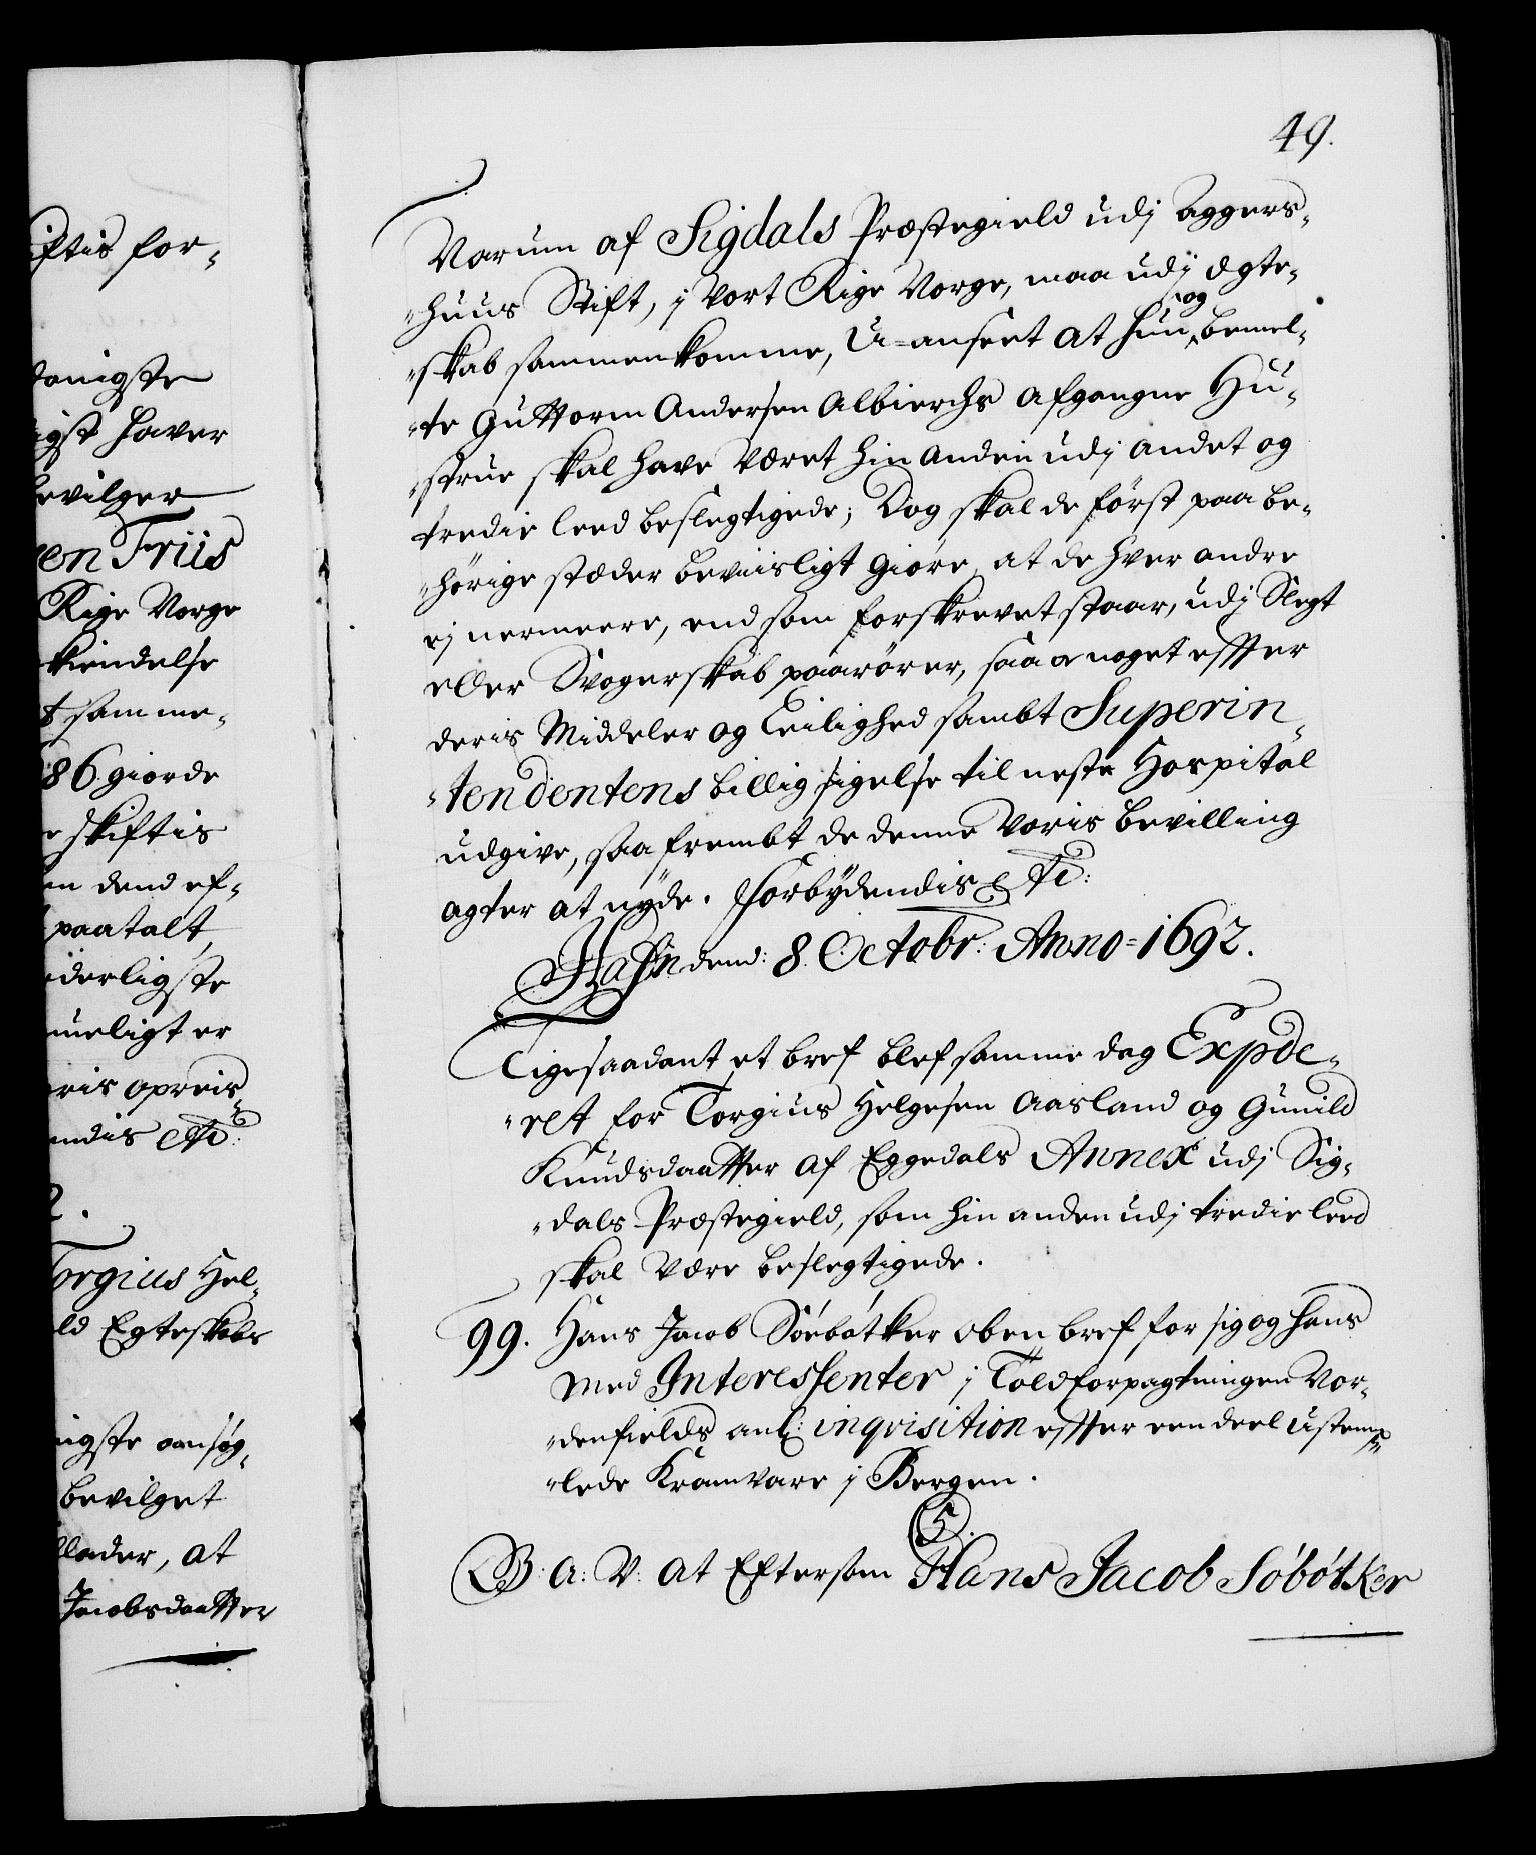 49.
Narum af Sigdals Præstegield udj Aggers-
-huus Stift, j vort Rige Norge, maa udj Ægte-
-skab sammenkomme, U-anseet at hun og bemel-
-te Guttorm Andersen Albierchs afgangne Hu-
-strue skal have været hin anden udj andet og
tredie leed beslegtigede; Dog skal de först paa be-
-hörige stæder beviisligt giøre, at de hver andre
ej nermeere, end som forskrevet staar, udj Slegt
eller Svogerskab paarörer, saa og noget effter
deris Middeler og Leilighed sambt Superin-
-tendentens billig sigelse til neste Hospital
udgive, saa frembt de denne Voris bevilling
agter at nyde. Forbydendis etc:
Hafn dend: 8. Octobr: Anno-1692.
Ligesaadant et bref blef samme dag Expde-
-ret for Torgius Helgesen Aasland og Gunild
Knudsdaatter af Eggedals Annex udj Sig-
-dals Præstegield, som hin anden udj tredie leed
skal være beslegtigede.
99. Hans Jacob Söebötker oben bref for sig og hans
med Interessenter j Toldforpagtningen Nor-
-denfields anl: inqvisition effter een deel ustemp-
-lede Kramvare j Bergen.
5.
G: A: V: at Eftersom Hans Jacob Söbötker
iftis for-
danigste
igst haver
bevilger
en Friis
Rige Norge
kiendelse
t samme-
86. giorde
skiftis
en dend ef-
paatalt,
iderligste
mueligt er
eris opreis-
endis etc:
2.
Torgius Hel-
ld Egteskabs
nigste ansøg-
bevilget
llader, at
Jacobsdaatter